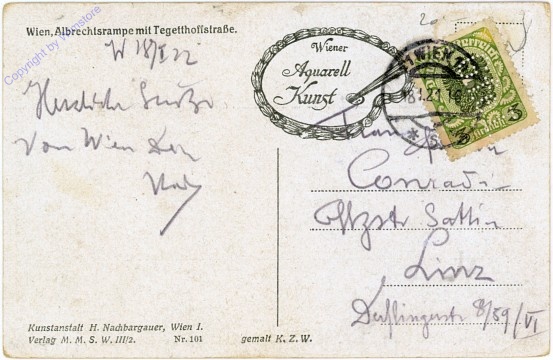 Wien, Albrechtsrampe mit Tegetthoffstraße.
Copyright by Vamstore
W 18/I 22
Herzliche Grüße
von Wien
Wiener
Aquarell
Kunst
1 WIEN 1
18.I.21
Österreich
3 3
Frau
Conradi
Linz
Derfflingerstr 8/59/VI
Kunstanstalt H. Nachbargauer, Wien I.
Verlag M. M. S. W. III/2. Nr. 101
gemalt K. Z. W.